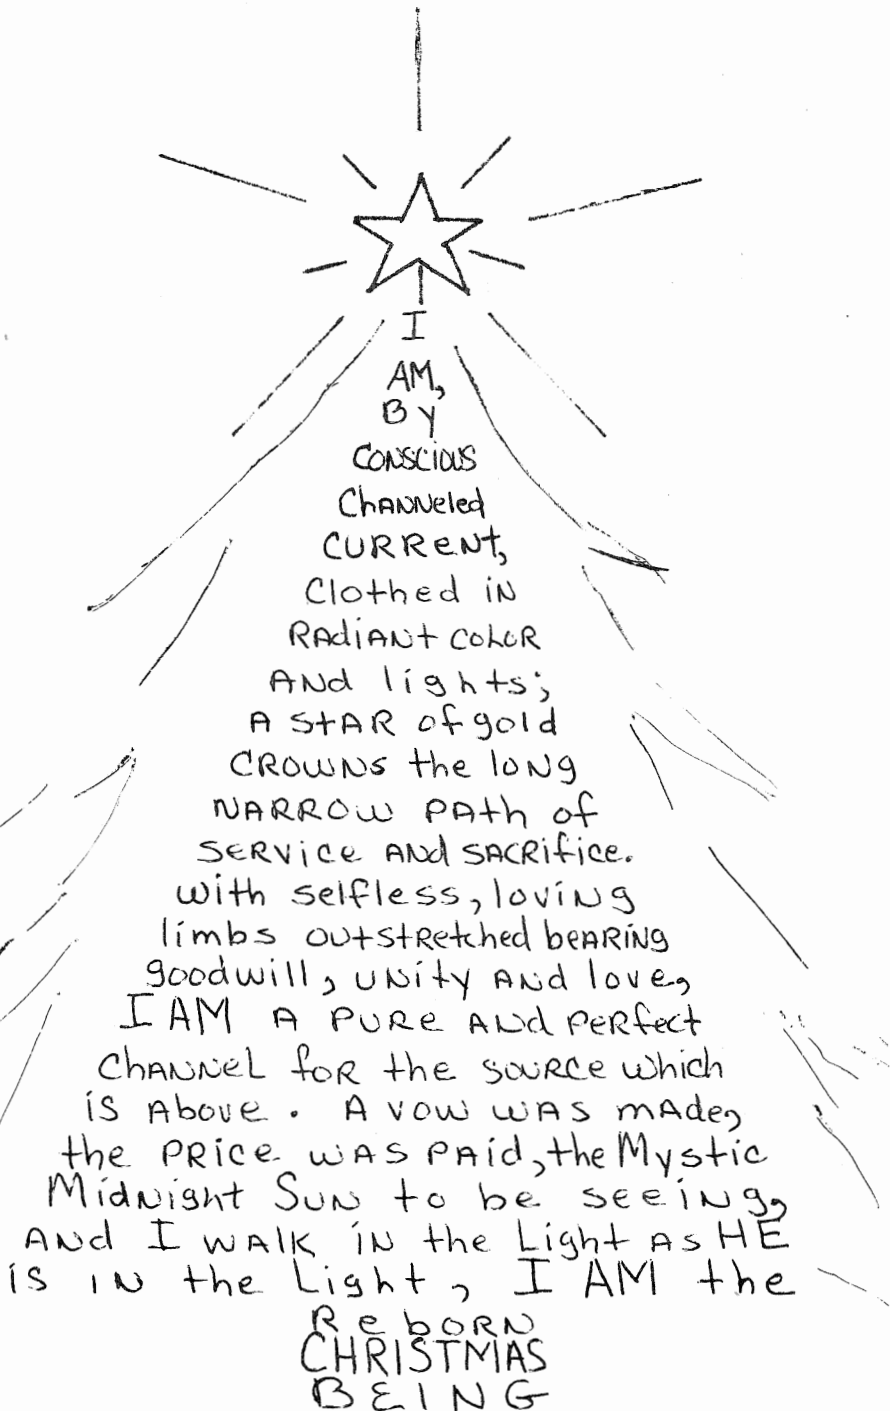 I
AM,
BY
CONSCIOUS
CHANNeled
CURReNt,
Clothed iN
RAdiANt COLOR
ANd lights;
A StAR of gold
CROWNS the loNg
NARROW PAth of
SERVice ANd SACRifice.
With selfless, loviNg
limbs outstRetched beARiNg
goodwill, UNity ANd love,
I AM A PURe ANd PeRfect
ChANNeL foR the SOURCe which
iS Above. A vow WAS mAde,
the PRice WAS PAid, the Mystic
MidNight SuN to be seeiNg,
ANd I WAlK iN the Light AS HE
iS iN the Light, I AM the
ReboRN
CHRISTMAS
BEING